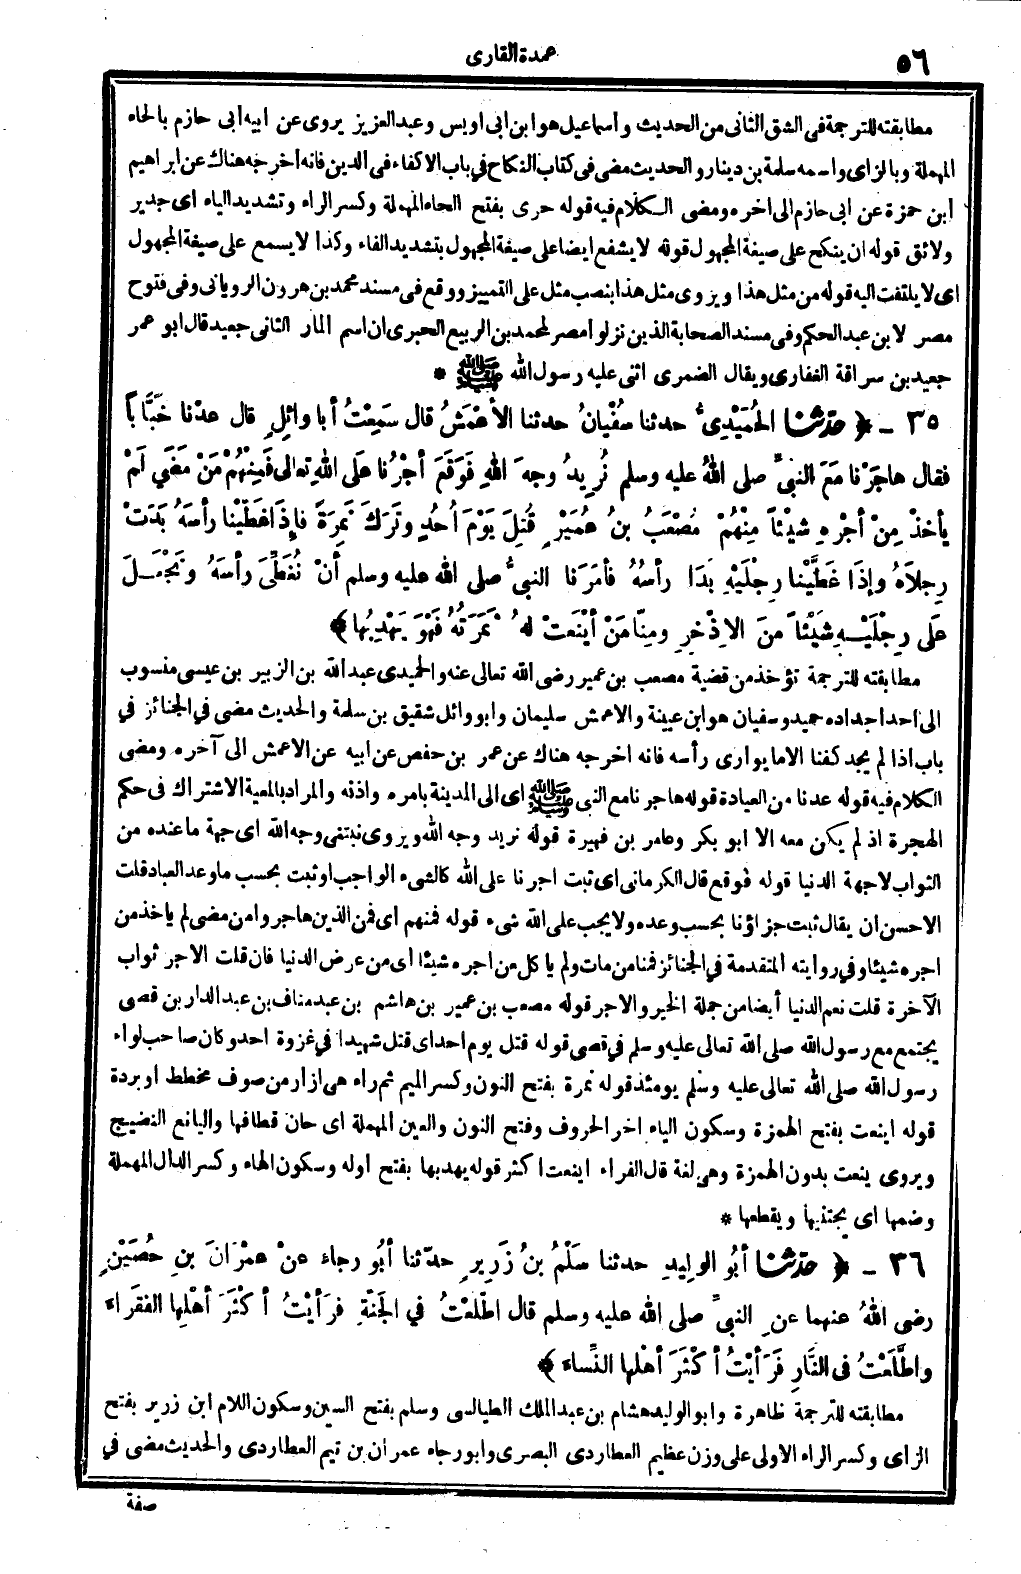 ٥٦
عمدة القارى
مطابقته للترجمة فى الشق الثانى من الحديث واسماعيل هو ابن ابى اويس وعبد العزيز يروى عن ابيه أبى حازم بالحاء
المهملة وبالزاى واسمه سلمة بن دينار والحديث مضى فى كتاب النكاح فى باب الاكفاء فى الدين فانه أخرجه هناك عن ابراهيم
ابن حمزة عن ابى حازم الى اخره ومضى الكلام فيه قوله حرى بفتح الحاء المهملة وكسر الراء وتشديد الياء اى جدير
ولائق قوله ان ينكح على صيغة المجهول قوله لا يشفع ايضا على صيغة المجهول بتشديد الفاء وكذا لا يسمع على صيغة المجهول
اى لا يلتفت اليه قوله من مثل هذا ويروى مثل هذا بنصب مثل على التمييز ووقع فى مسند محمد بن هرون الرويانى وفى فتوح
مصر لابن عبد الحكم وفى مسند الصحابة الذين نزلوا مصر لمحمد بن الربيع الحبرى ان اسم المار الثانى جعيد قال ابو عمر
جعيد بن سراقة الغفارى ويقال الضمرى اثنى عليه رسول الله ﷺ *
٣٥ - ﴿ حَدَّثَنَا الحُمَيْدِىُّ حدثنا سُفْيانُ حدثنا الأَعْمَشُ قال سَمِعْتُ أبا وائِلٍ قال عدْنا خَبَّاباً
فقال هاجَرْنا مَعَ النبىِّ صلى اللهُ عليه وسلم نُرِيدُ وجهَ اللهِ فَوَقَعَ أجْرُنا عَلَى اللهِ تعالى فَمِنْهُمْ مَنْ مَضَى لَمْ
يأخذْ مِنْ أجْرِهِ شيْئاً مِنْهُمْ مُصْعَبُ بنُ عُمَيْرٍ قُتِلَ يَوْمَ أُحُدٍ وتَرَكَ نَمِرَةً فإِذَا غَطَّيْنا رأسَهُ بَدَتْ
رِجلاَهُ وإذَا غَطَّيْنا رِجْلَيْهِ بَدَا رأسُهُ فأمَرَنا النبىُّ صلى الله عليه وسلم أنْ نُغَطِّىَ رأسَهُ ونَجْعَـلَ
عَلَى رِجْلَيْـهِ شَيْئاً منَ الاِذْخِرِ ومِنَّا مَنْ أيْنَعَتْ لهُ ثمَرَتُهُ فَهْوَ يَهْدِبُها ﴾
مطابقته للترجمة تؤخذ من قضية مصعب بن عمير رضى الله تعالى عنه والحميدى عبد الله بن الزبير بن عيسى منسوب
الى احد اجداده حميد وسفيان هو ابن عيينة والاعمش سليمان وابو وائل شقيق بن سلمة والحديث مضى فى الجنائز فى
باب اذا لم يجد كفنا الا ما يوارى رأسه فانه اخرجه هناك عن عمر بن حفص عن ابيه عن الاعمش الى آخره ومضى
الكلام فيه قوله عدنا من العيادة قوله هاجرنا مع النبى ﷺ اى الى المدينة بامره واذنه والمراد بالمعية الاشتراك فى حكم
الهجرة اذ لم يكن معه الا ابو بكر وعامر بن فهيرة قوله نريد وجه الله ويروى نبتغى وجه الله اى جهة ما عنده من
الثواب لا جهة الدنيا قوله فوقع قال الكرمانى اى ثبت اجرنا على الله كالشىء الواجب او ثبت بحسب ما وعد العباد قلت
الاحسن ان يقال ثبت جزاؤنا بحسب وعده ولا يجب على الله شىء قوله فمنهم اى فمن الذين هاجروا من مضى لم ياخذ من
اجره شيئا وفى روايته المتقدمة فى الجنائز فمنا من مات ولم ياكل من اجره شيئا اى من عرض الدنيا فان قلت الاجر ثواب
الآخرة قلت نعم الدنيا أيضا من جملة الخير والاجر قوله مصعب بن عمير بن هاشم بن عبد مناف بن عبد الدار بن قصى
يجتمع مع رسول الله صلى الله تعالى عليه وسلم فى قصى قوله قتل يوم احد اى قتل شهيدا فى غزوة احد وكان صاحب لواء
رسول الله صلى الله تعالى عليه وسلم يومئذ قوله نمرة بفتح النون وكسر الميم ثم راء هى ازار من صوف مخطط او بردة
قوله اينعت بفتح الهمزة وسكون الياء اخر الحروف وفتح النون والعين المهملة اى حان قطافها واليانع النضيج
ويروى ينعت بدون الهمزة وهى لغة قال الفراء اينعت اكثر قوله يهدبها بفتح اوله وسكون الهاء وكسر الدال المهملة
وضمها اى يجتذبها ويقطعها *
٣٦ - ﴿ حَدَّثَنَا أبُو الوليدِ حدثنا سَلْمُ بنُ زَرِيرٍ حدّثنا أبُو رجاء عنْ عِمْرَانَ بنِ حُصَيْنٍ
رضى اللهُ عنهما عنِ النبىِّ صلى الله عليه وسلم قال اطّلعْتُ فى الجنّةِ فرَأيْتُ أكْثَرَ أهْلِها الفقَرَاءَ
واطَّلَعْتُ فى النَّارِ فَرَأيْتُ أكْثَرَ أهْلها النِّساءَ ﴾
مطابقته للترجمة ظاهرة وابو الوليد هشام بن عبد الملك الطيالسى وسلم بفتح السين وسكون اللام ابن زرير بفتح
الزاى وكسر الراء الاولى على وزن عظيم العطاردى البصرى وابو رجاء عمران بن تيم العطاردى والحديث مضى فى
صفة